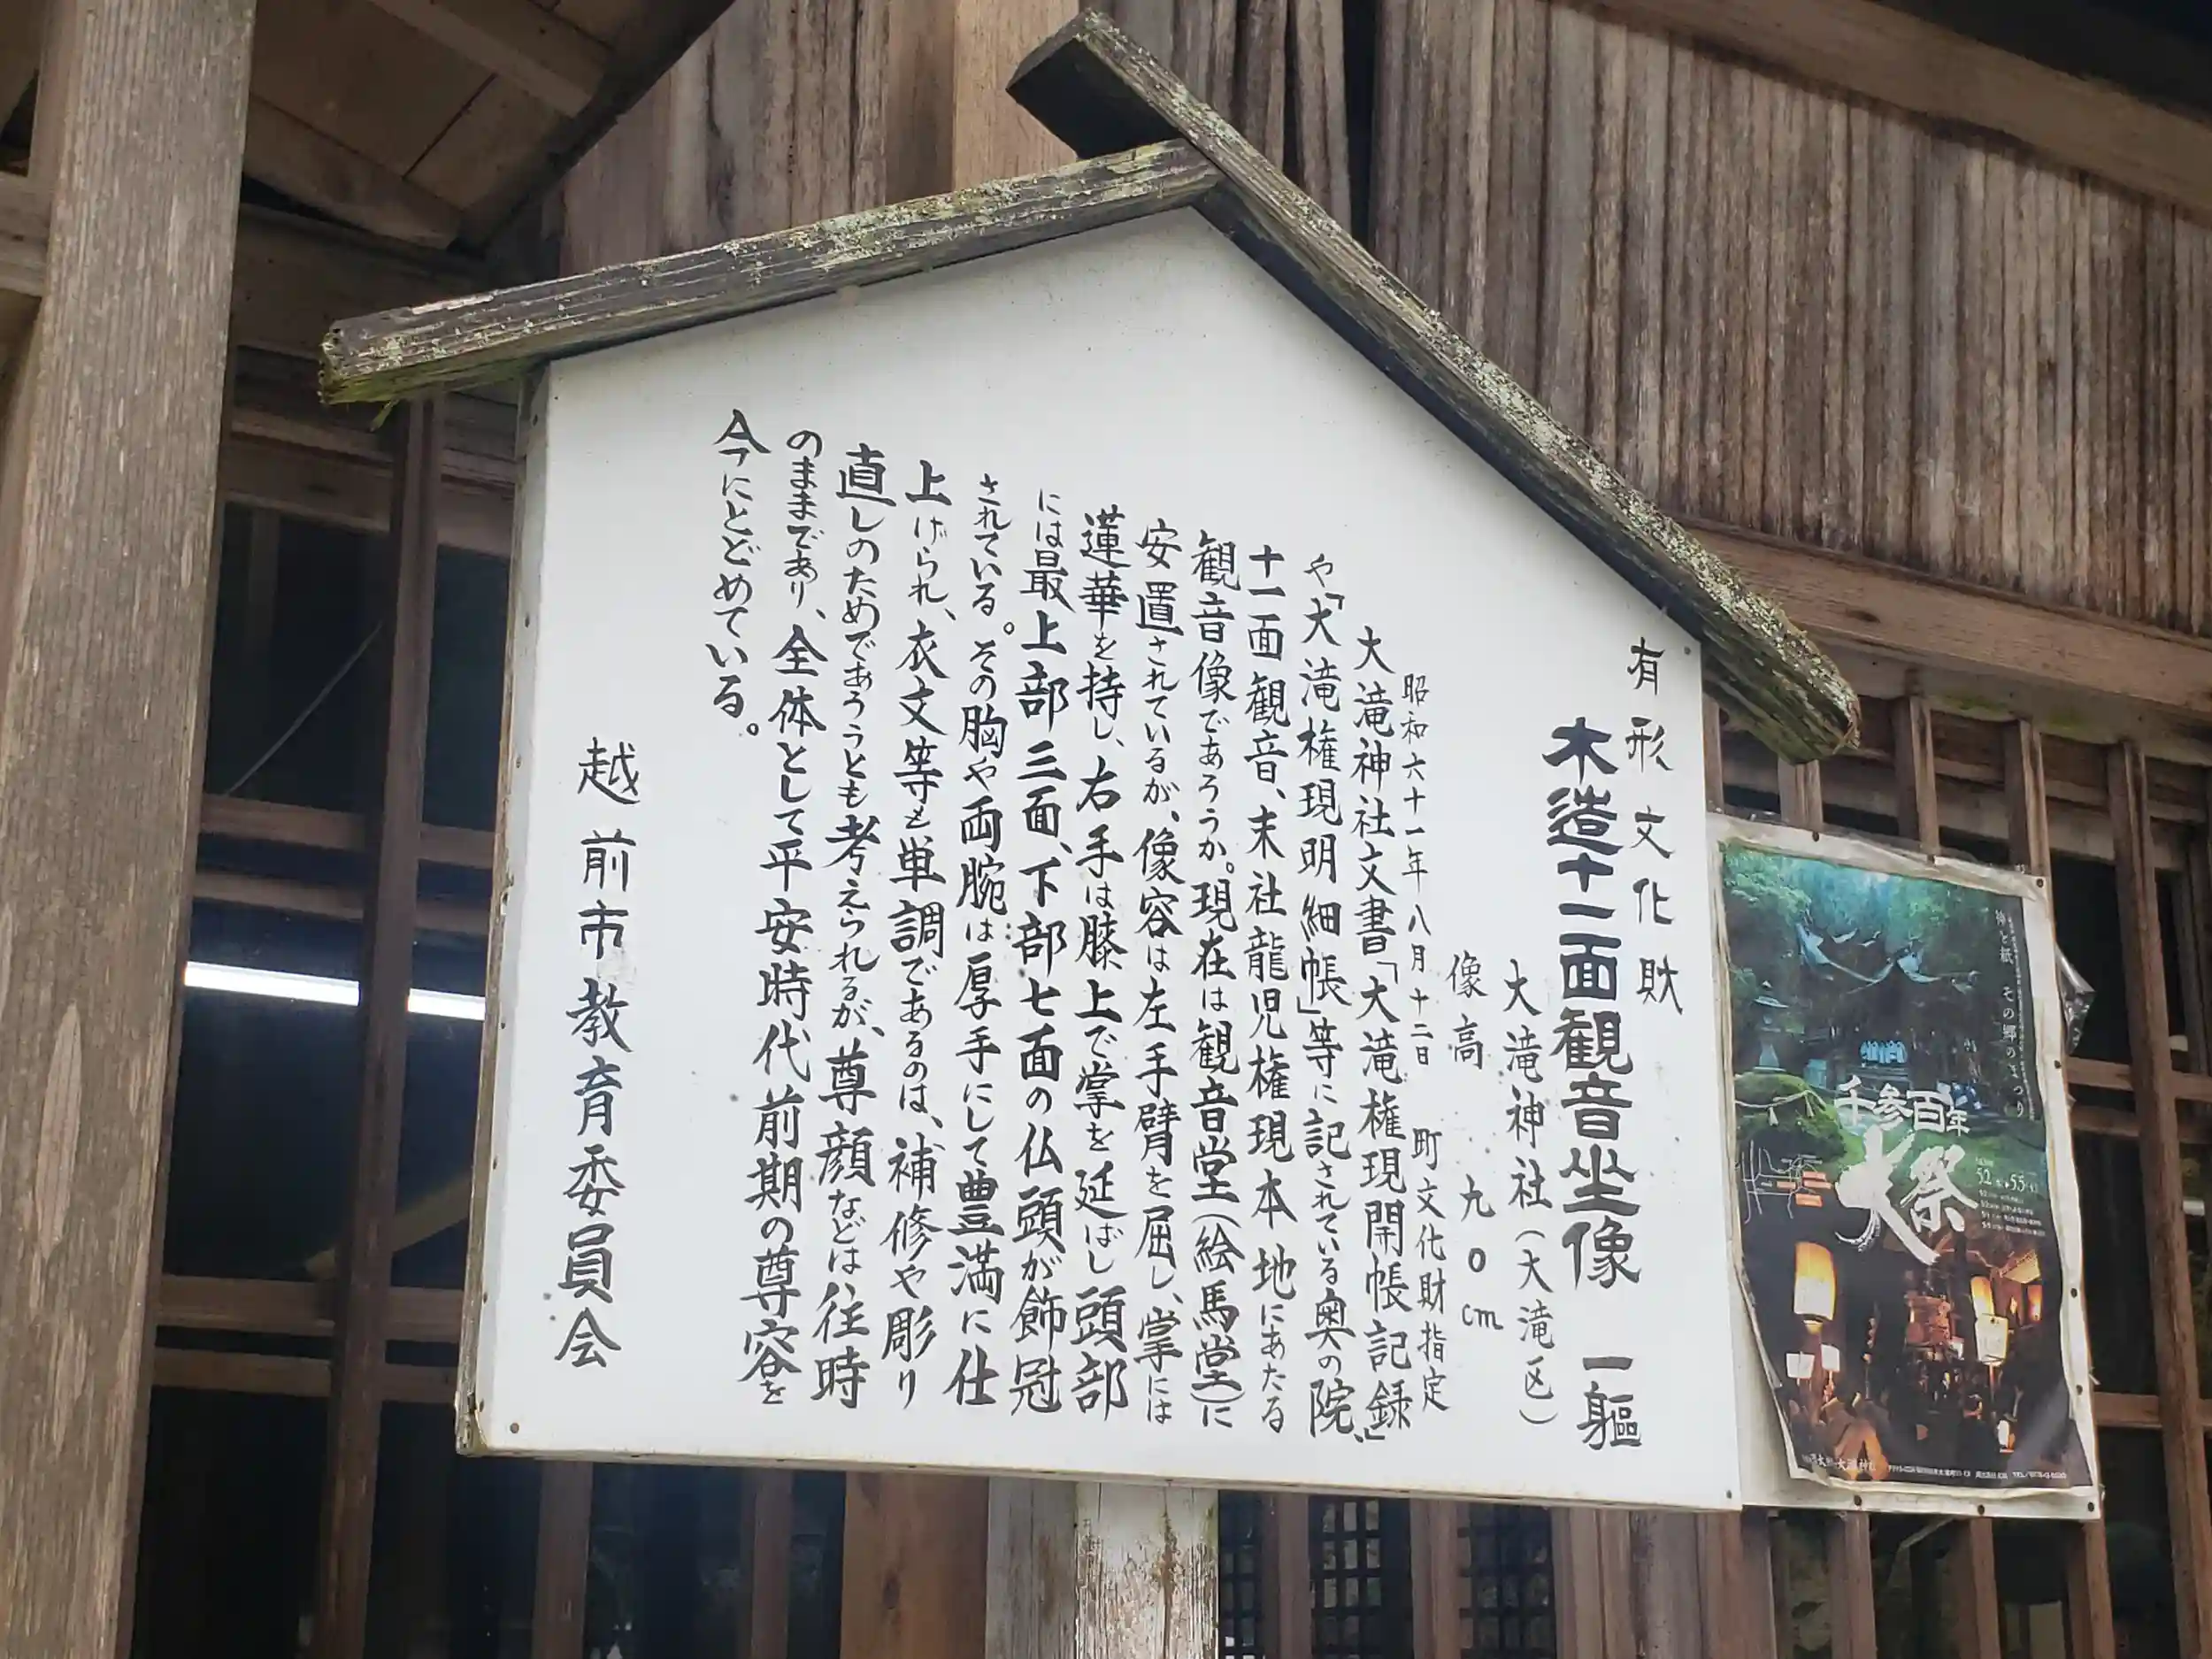 有形文化財
木造十一面観音坐像 一軀
大滝神社(大滝区)
像高 九0cm
昭和六十一年八月十二日 町文化財指定
大滝神社文書「大滝権現開帳記録」
や「大滝権現明細帳」等に記されている奥の院、
十一面観音、末社龍児権現本地にあたる
観音像であろうか。現在は観音堂(絵馬堂)に
安置されているが、像容は左手臂を屈し、掌には
蓮華を持し、右手は膝上で掌を延ばし頭部
には最上部三面、下部七面の仏頭が飾冠
されている。その胸や両腕は厚手にして豊満に仕
上げられ、衣文等も単調であるのは、補修や彫り
直しのためであろうとも考えられるが、尊顔などは往時
のままであり、全体として平安時代前期の尊容を
今にとどめている。
越前市教育委員会
神と紙 その郷のまつり
千参百年
大祭